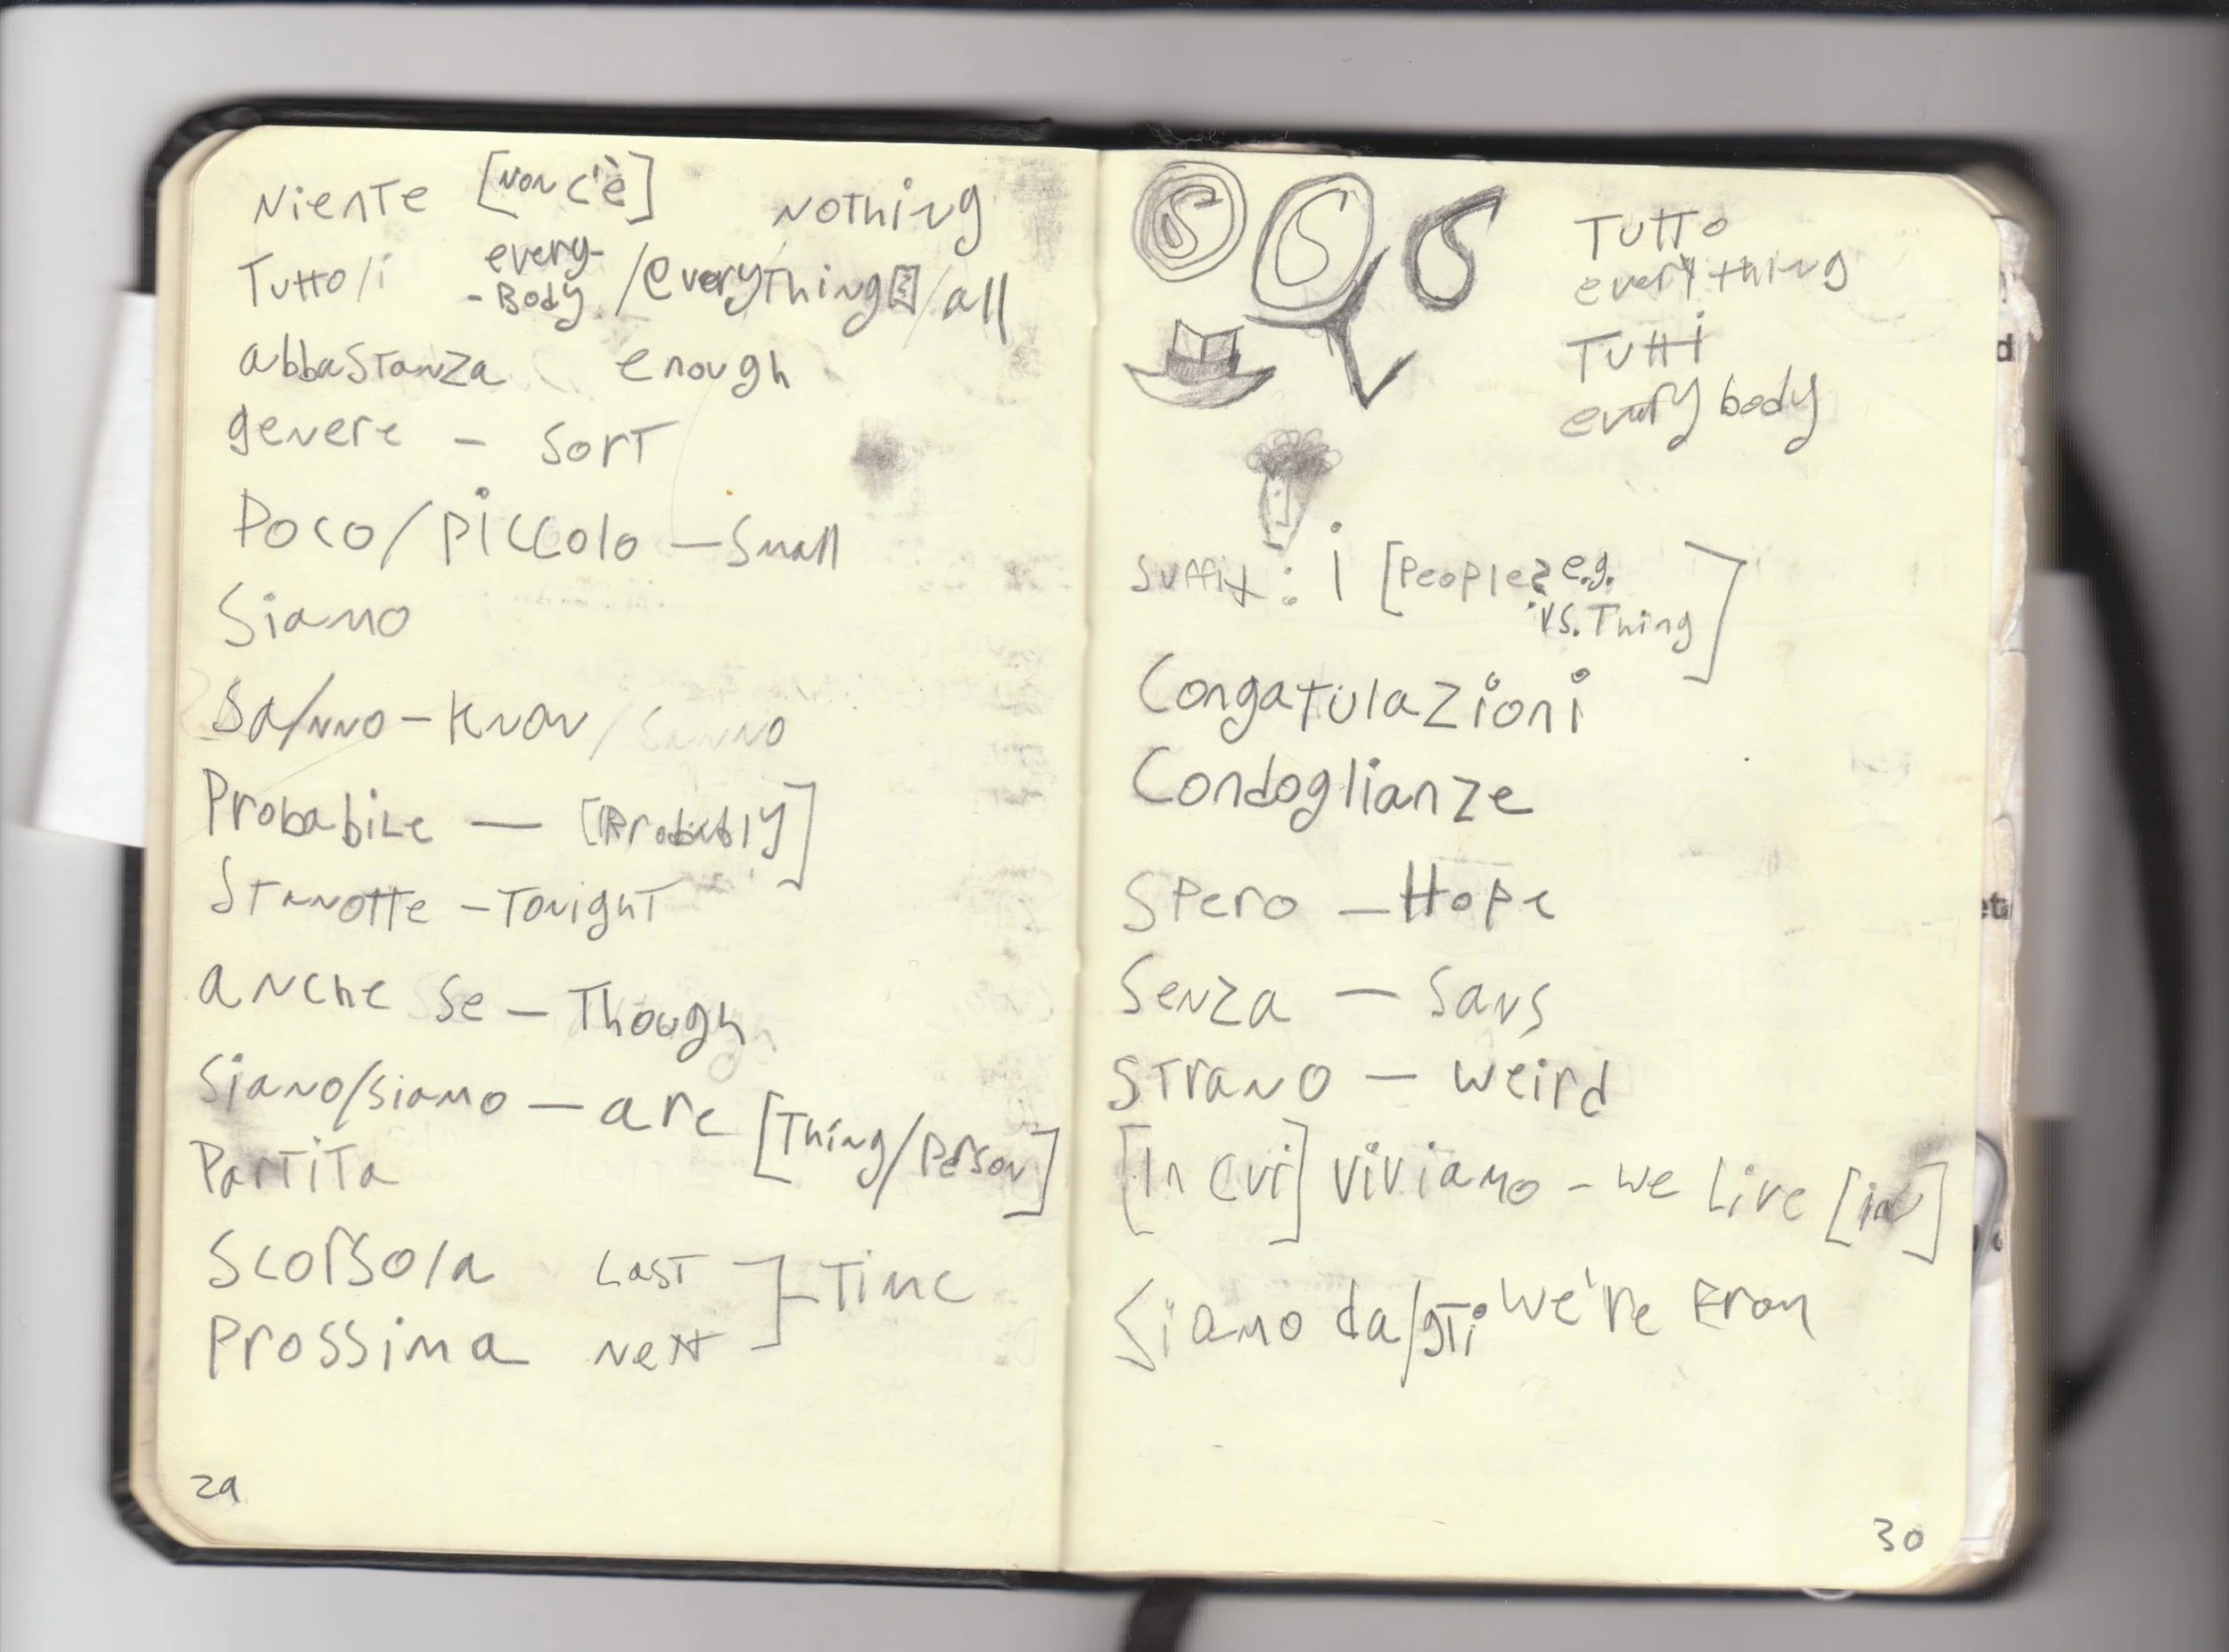 Niente [non c'è] nothing
Tutto/i every- -Body /everything/all
abbastanza enough
genere - sort
Poco/piccolo - small
Siamo
Sa/nno - know / sanno
Probabile - [Probably]
Stanotte - Tonight
anche se - Though
Siano/siamo - are [Thing/Person]
Partita
Scorso/a Last ]- Time
Prossima Next
29
Tutto
everything
Tutti
everybody
suffix: i [People? e.g.
vs. Thing]
Congatulazioni
Condoglianze
Spero - Hope
Senza - Sans
Strano - weird
[In cui] viviamo - we live [in]
Siamo da/ we're From
30
d
et